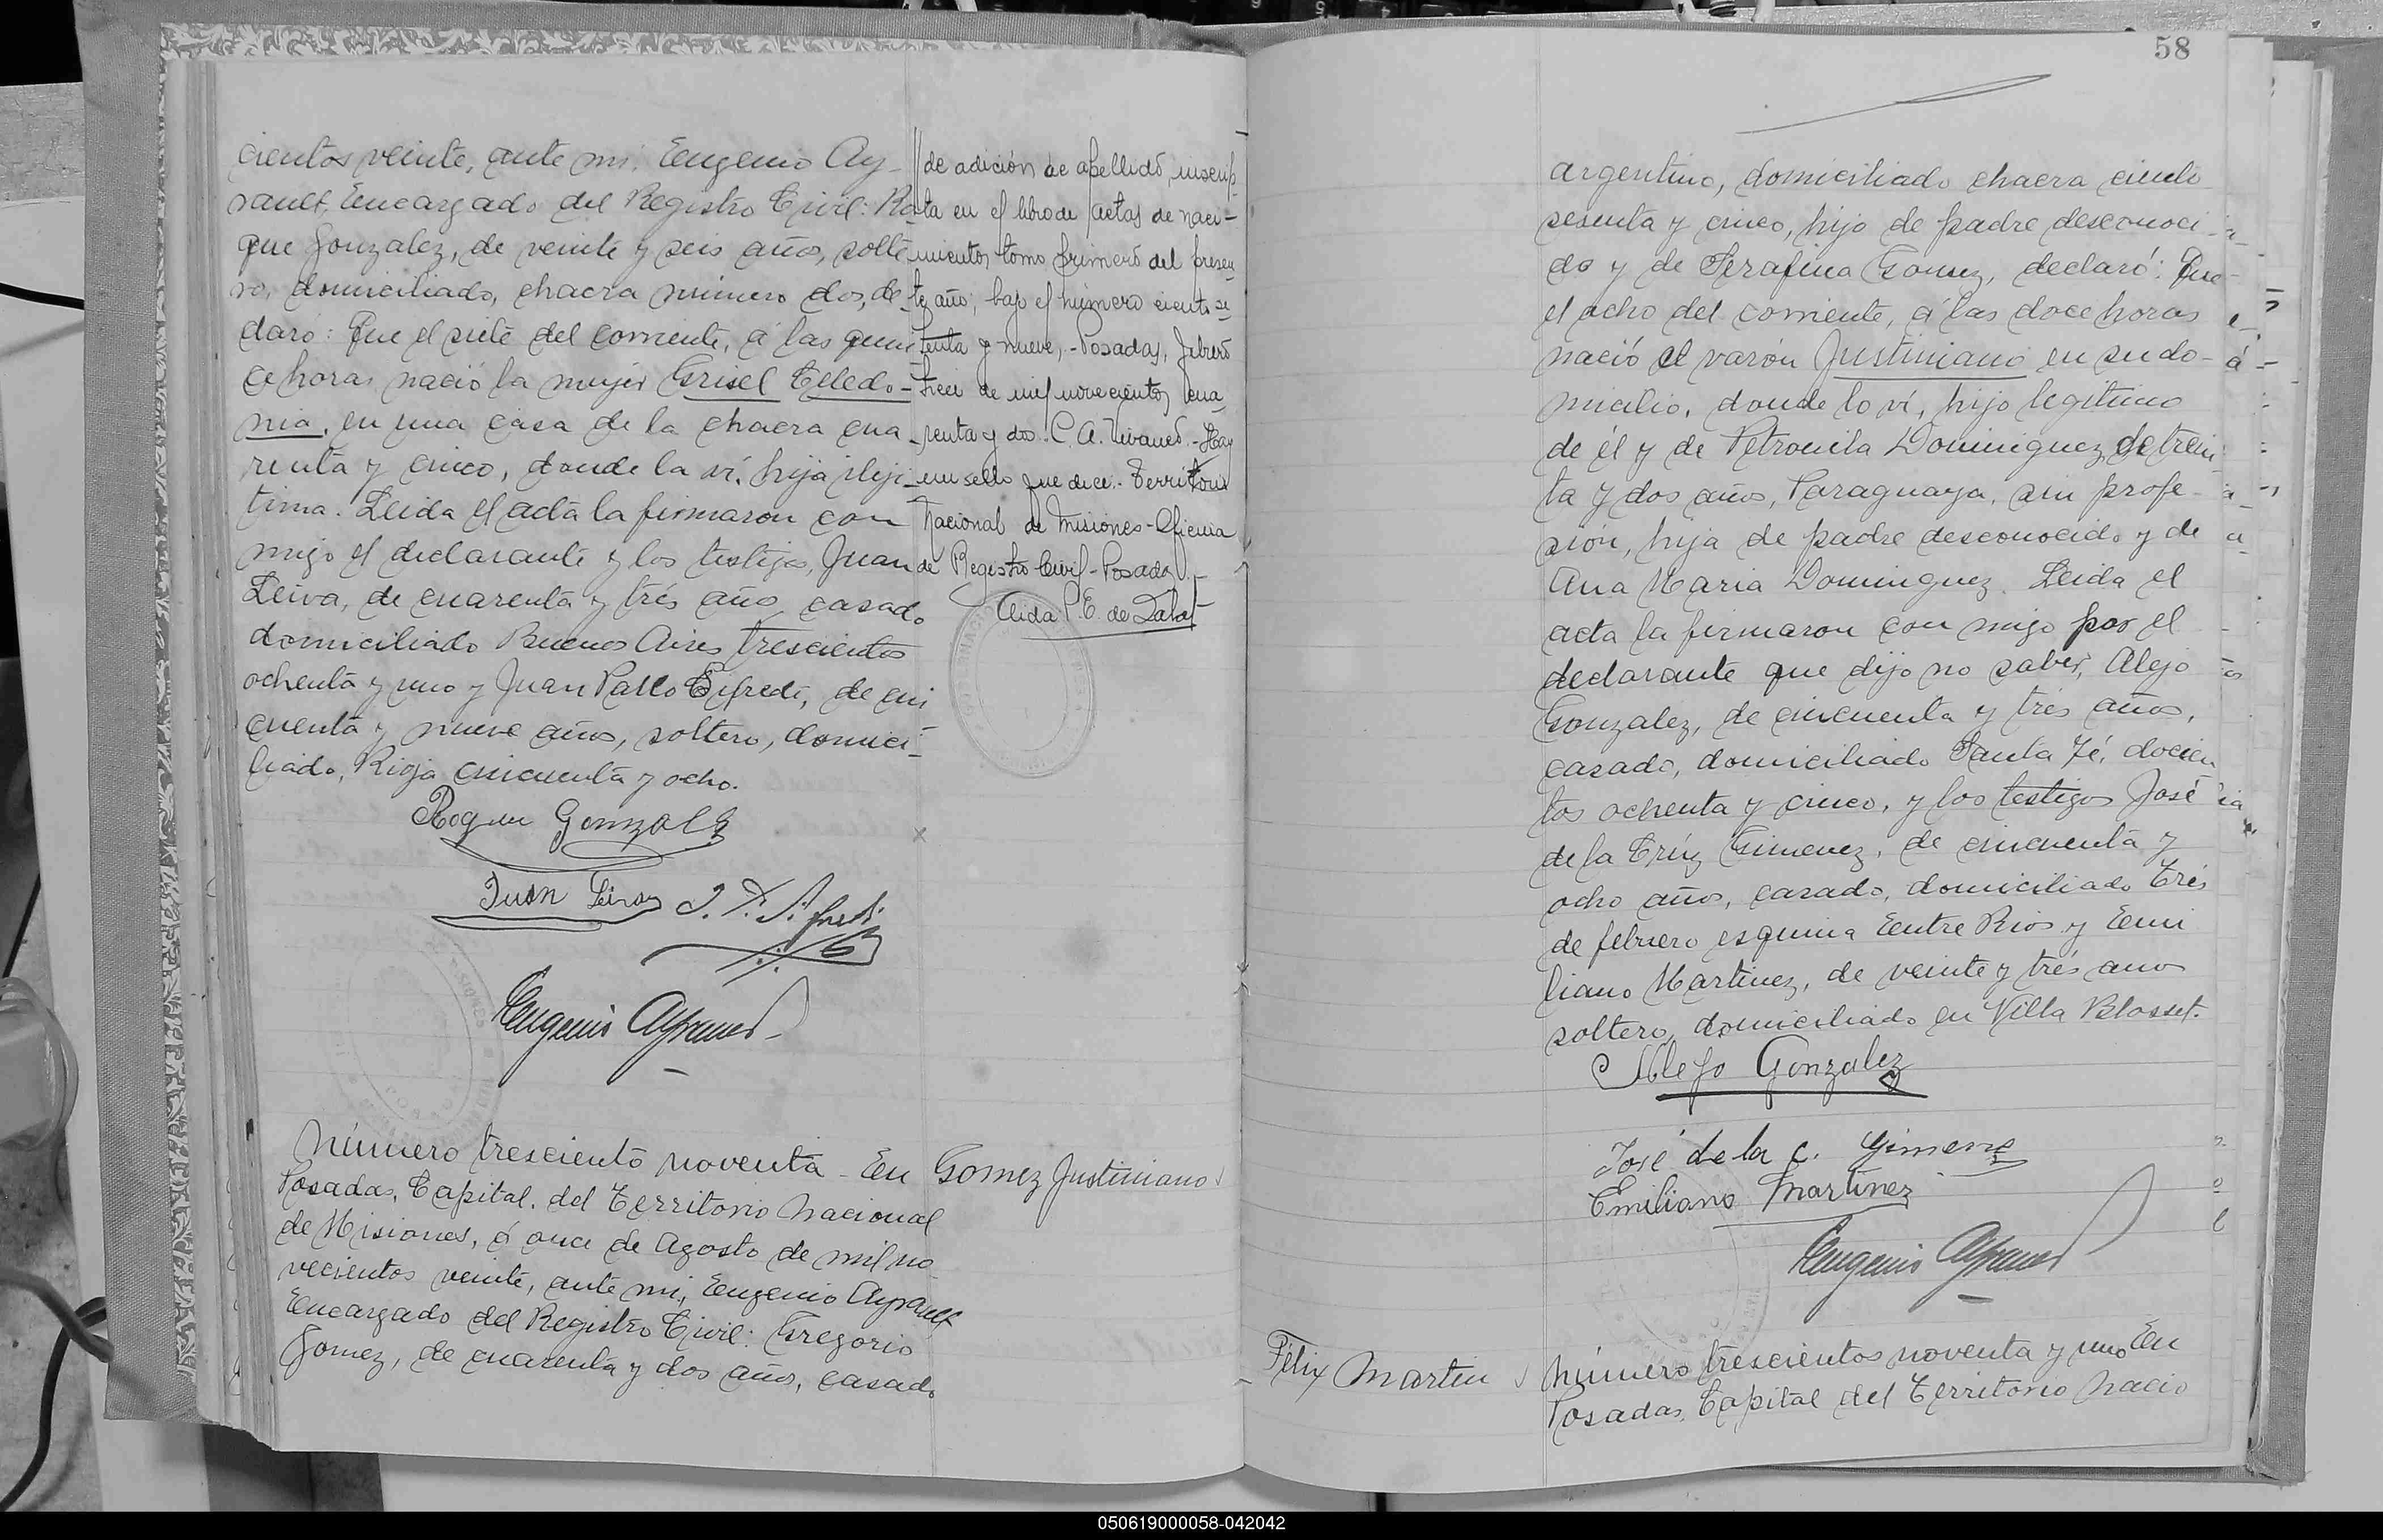 cientos veinte, ante mi, Eugenio Ay-
rault, Encargado del Registro Civil: Ro
que Gonzalez, de veinte y seis años, solte
ro, domiciliado, chacra número dos, de
claró: Que el siete del corriente, á las quin
ce horas nació la mujer Grisel Celedo-
nia, en una casa de la chacra cua
renta y cinco, donde la ví, hija ileji
tima. Leida el acta la firmaron con
migo el declarante y los testigos, Juan
Leiva, de cuarenta y trés año, casado
domiciliado Buenos Aires trescientos
ochenta y uno y Juan Pablo Sifredi, de cin
cuenta y nueve años, soltero, domici-
liado, Rioja cincuenta y ocho.
Roque Gonzalez
Juan Leiva
Eugenio Ayrault
// de adición de apellido, inscrip-
ta en el libro de actas de naci-
mientos tomo primero del presen
te año, bajo el número ciento se
tenta y nueve,- Posadas, febrero
trece de mil novecientos cua
renta y dos. C. A. - Hay
un sello que dice. Territorio
Nacional de Misiones-Oficina
de Registro Civil-Posadas
Aida P. E. de
Número trescientō noventa - En
Posadas, Capital, del Territorio Nacional
de Misiones, á once de Agosto de mil no
vecientos veinte, ante mi, Eugenio Ayrault
Encargado del Registro Civil: Gregorio
Gomez, de cuarenta y dos años, casado
Gomez Justiniano
58
argentino, domiciliado chacra ciento
sesenta y cinco, hijo de padre desconoci-
do y de Serafina Gomez, declaró: Que
el ocho del corriente, á las doce horas
nació el varón Justiniano en su do-
micilio, donde lo ví, hijo legitimo
de él y de Petronila Dominguez, de trein
ta y dos años, Paraguaya, sin profe-
sión, hija de padre desconocido y de
Ana Maria Dominguez. Leida el
acta la firmaron con migo por el
declarante que dijo no saber, Alejo
Gonzalez, de cincuenta y trés años,
casado, domiciliado Santa Fé, docien
tos ochenta y cinco, y los testigos José
de la Crúz Gimenez, de cincuenta y
ocho años, casado, domiciliado Trés
de febrero esquina Entre Rios y Emi
liano Martinez, de veinte y trés anos
soltero, domiciliado en Villa Blosset.
Alejo Gonzalez
José de la C. Gimenez
Emiliano Martinez
Eugenio Ayrault
Félix Martin
Número trescientos noventa y uno En
Posadas, Capital del Territorio Nacio
050619000058-042042